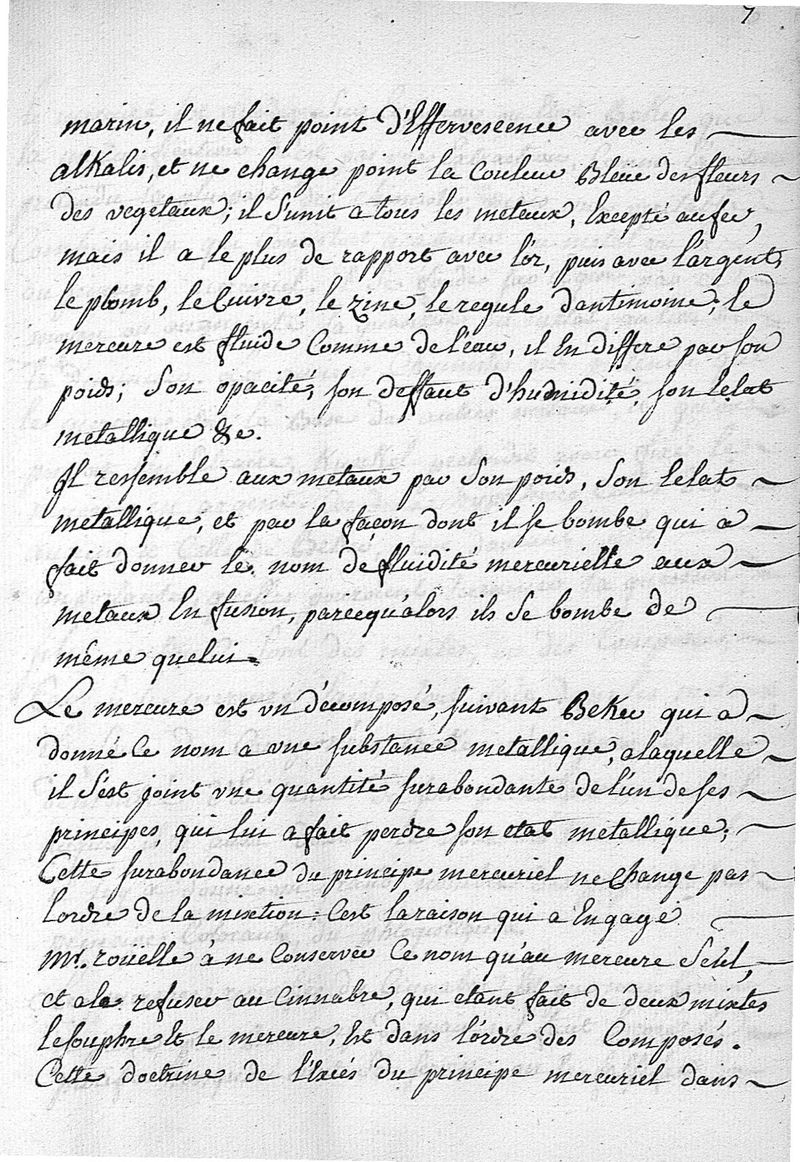 7
marin, il ne fait point d'Effervescence avec les
alkalis, et ne change point la Couleur Bleue des fleurs
des vegetaux; il S'unit a tous les metaux, Excepté au fer,
mais il a le plus de rapport avec l'or, puis avec l'argent,
le plomb, le Cuivre, le zinc, le regule d'antimome; le
mercure est fluide Comme de l'eau, il En differe par son
poids; Son opacité, son deffaut d'humidité, son Eclat
metallique &c.
Il ressemble aux metaux par Son poids, Son Eclat
metallique, et par la façon dont il se bombe qui a
fait donner le nom de fluidité mercurielle aux
metaux En fusion, parcequ'alors ils Se bombe de
même que lui.
Le mercure est un décomposé, suivant Beker qui a
donné Ce nom a une substance metallique, a laquelle
il S'est joint une quantité surabondante de l'un de ses
principes, qui lui a fait perdre son etat metallique;
Cette surabondance du principe mercuriel ne Change pas
l'ordre de la mixtion: C'est la raison qui a Engagé
Mr. rouelle a ne Conserver Ce nom qu'au mercure Seul,
et a le refuser au Cinnabre, qui etant fait de deux mixtes
le souphre Et le mercure, Est dans l'ordre des Composés.
Cette doctrine de l'Excés du principe mercuriel dans